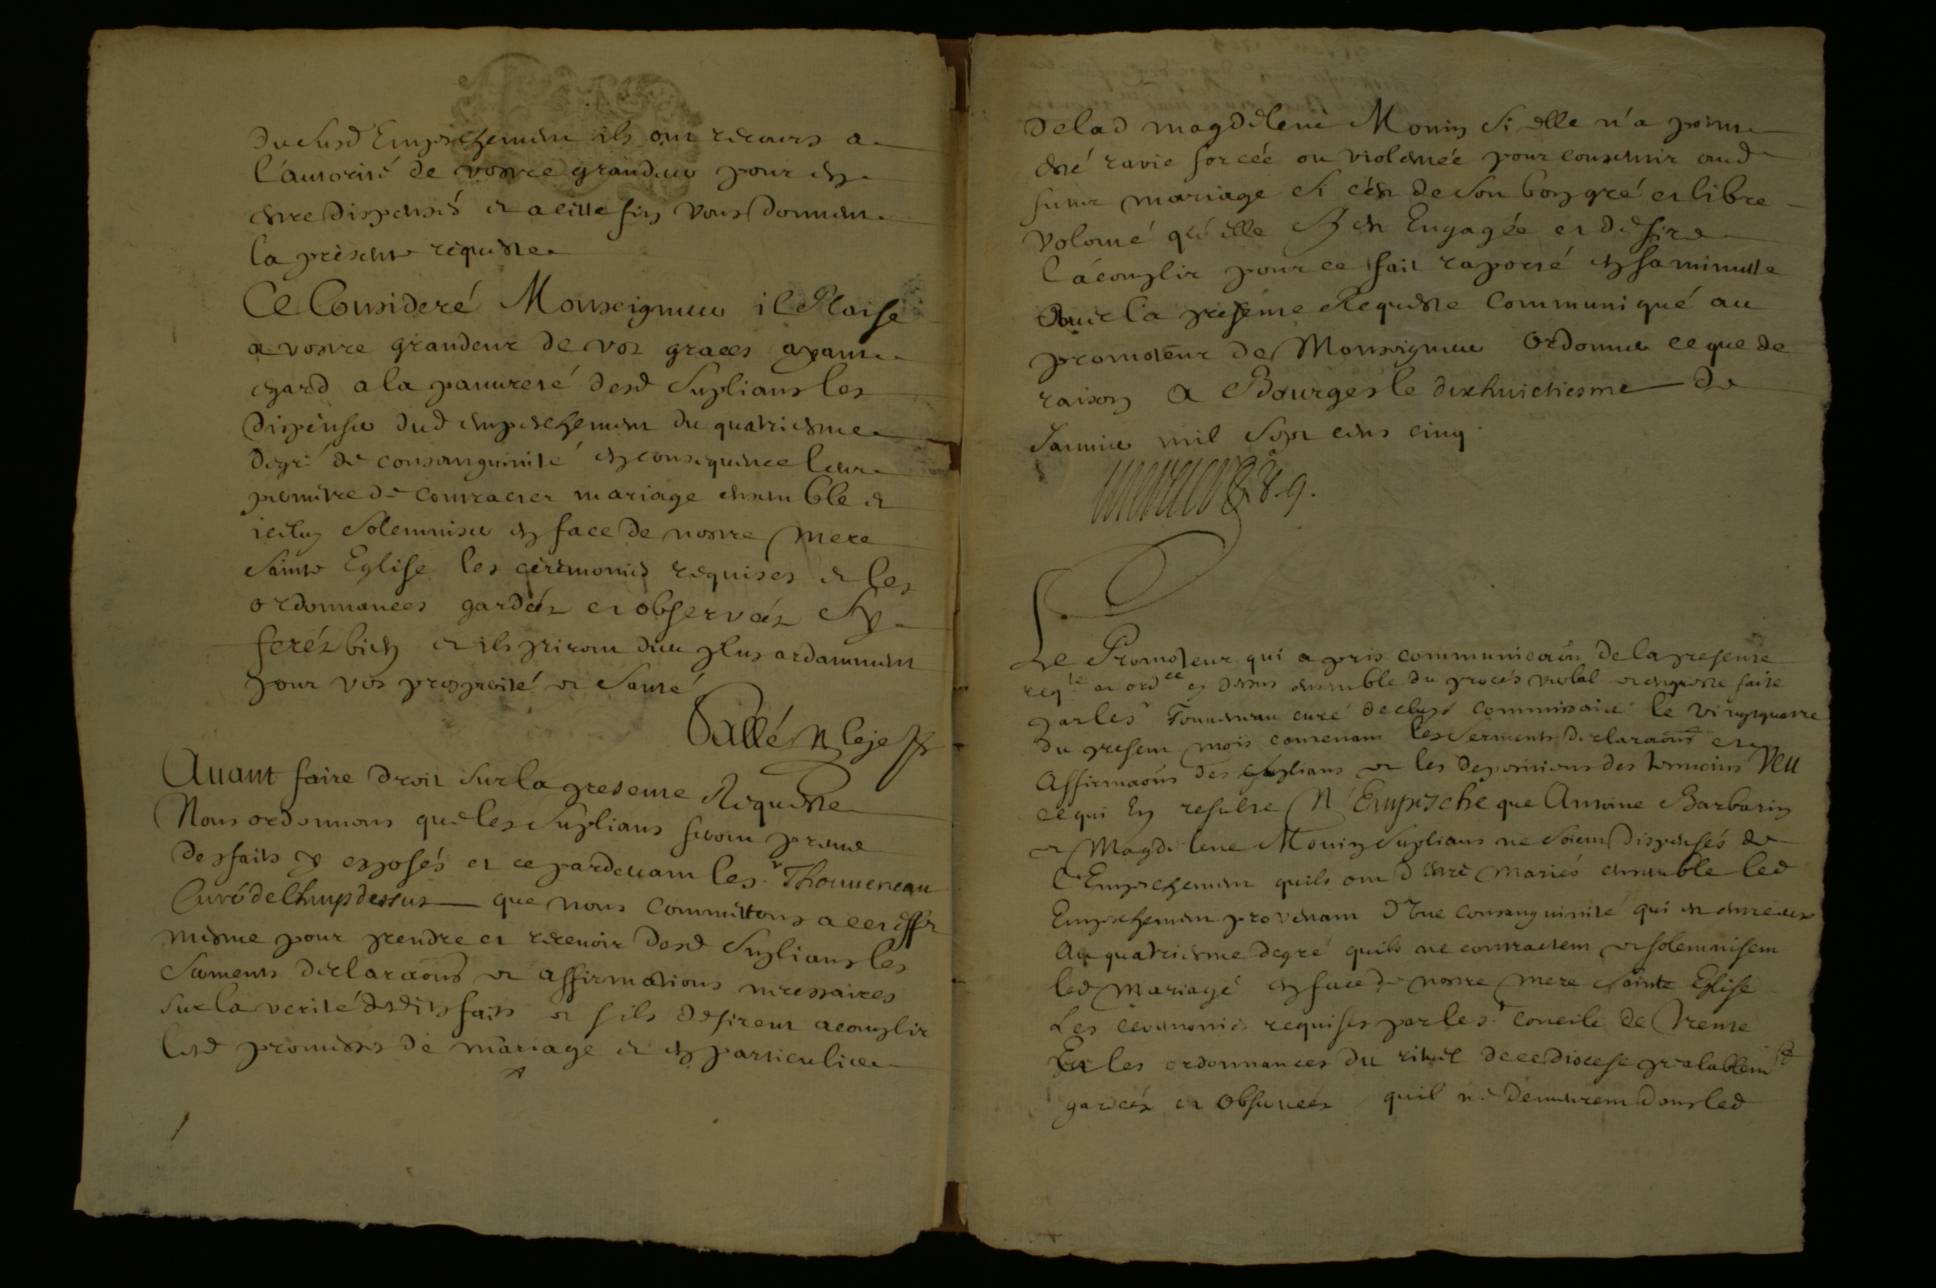 du susd Empeschement ils ont recours a
l'autorité de vostre grandeur pour en
estre dispensés et a cette fin vous donnent
la présente requeste
Ce Consideré Monseigneur il Plaise
a vostre grandeur de vos graces ayant
egard a la pauvreté desd supliants les
dispenser dud empeschement du quatriesme
degré de consanguinité en consequence leur
permettre de contracter mariage ensemble et
icelluy solemniser en face de nostre mere
sainte Eglise les cérémonies requises et les
ordonnances gardées et observées sy
ferés bien et ils priront dieu plus ardamment
pour vos prosperité et santé
Avant faire droit sur la presente Requeste
Nous ordonnons que les supliants feront preuve
des faits y exposés et ce pardevant le sr Thouveneau
Curé de que nous commettons a cet effet
mesme pour prendre et recevoir desd supliants les
serments declaraons et affirmations necessaires
sur la verité desdits faits et s'ils desirent acomplir
lesd promesses de mariage et en particulier
de lad magdelene Monin si elle n'a point
esté ravie forcée ou violentée pour consentir aud
futur mariage si c'est de son bon gré et libre
volonté qu'elle s'y est Engagée et desire
l'acomplir pour ce fait raporté en sa minutte
avec la presente Requeste Communiqué au
promoteur de Monseigneur ordonner ce que de
raison a Bourges le dixhuictiesme de
Janvier mil sept cens cinq
v. g.
Le Promoteur qui a pris communicaon de la presente
reqte et ordce cy dessus ensemble du procés verbal et enqueste faite
par le sr Touveneau curé de commissaire le vingt quatre
du present mois contenant les serments declaraons et
affirmaons des supliants et les depositions des temoins veu
ce qui en resulte N'Empesche que Antoine Barbarin
et Magdelene Monin supliants ne soient dispensés de
l'Empeschement quils ont d'estre mariés ensemble led
Empeschement provenant d'une consanguinité qui est entre eux
au quatriesme degré quils ne contractent et solemnisent
led mariage en face de nostre mere sainte Eglise
Les ceremonies requises par le st concile de Trente
Et les ordonnances du rituel de ce diocese prealablemt
gardées et observées quil ne demeurent dans led